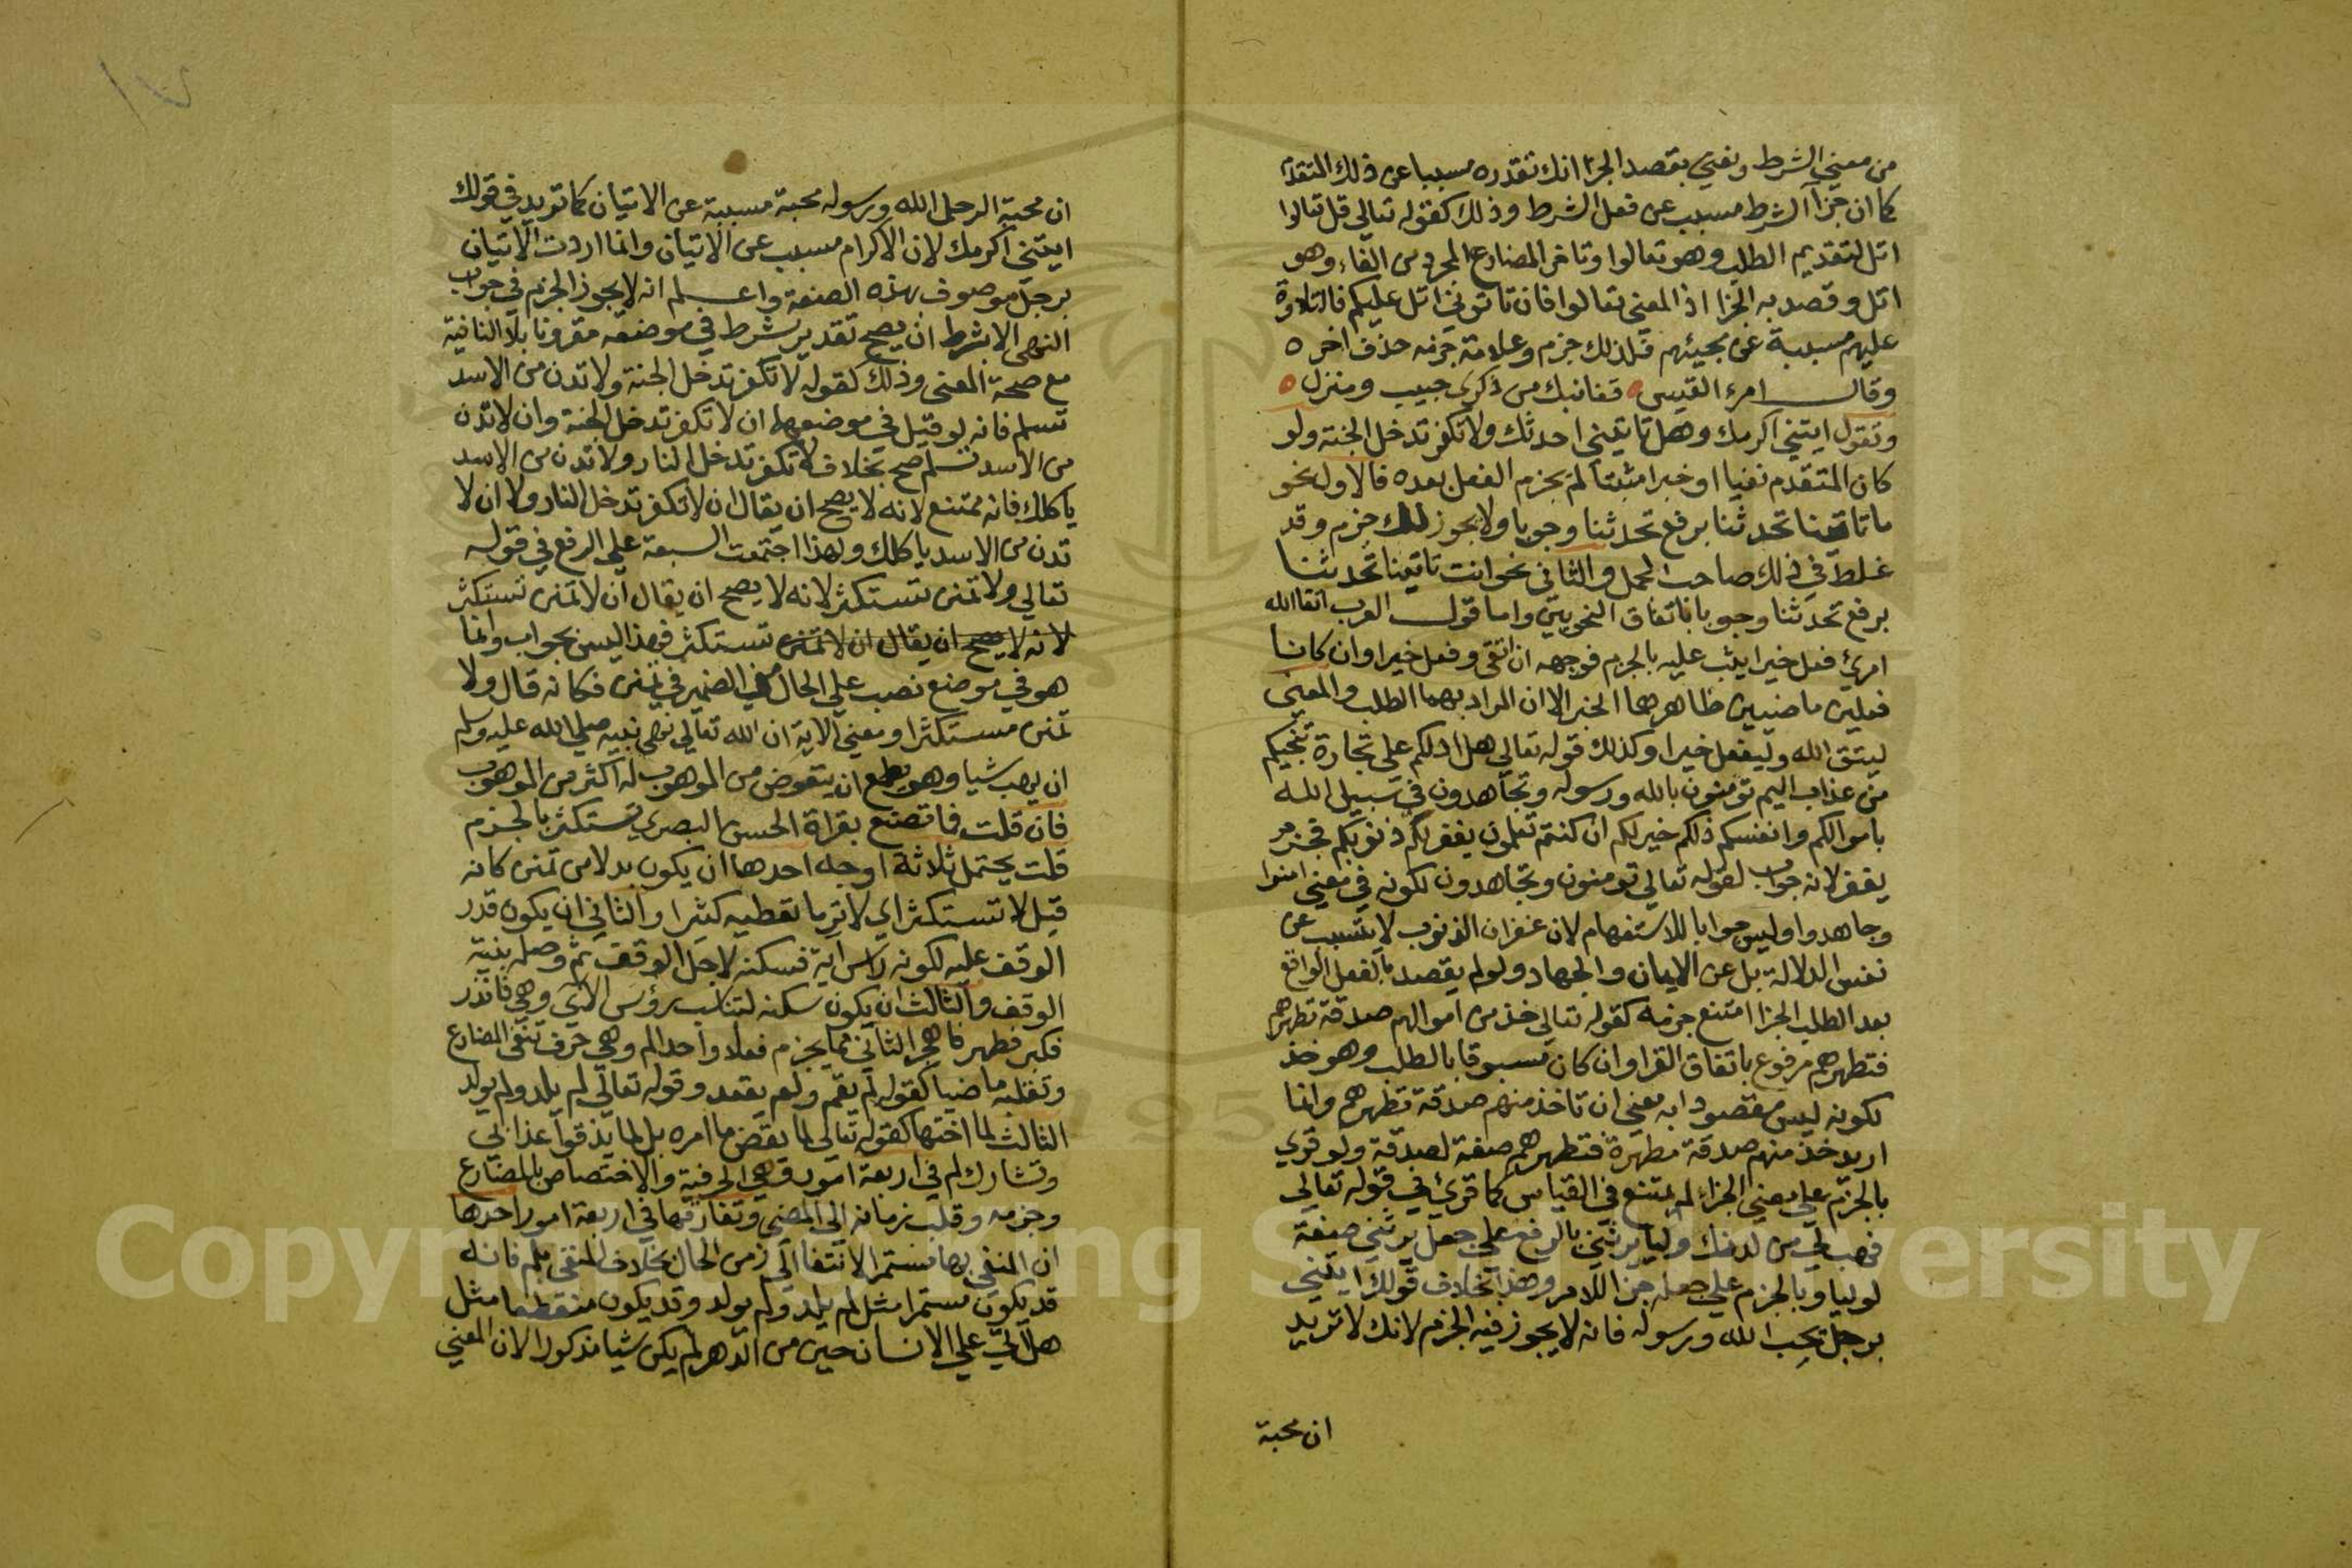 من معني الشرط ونعني بقصد الجزا انك تقدره مسببا عن ذلك المتقدم
كما ان جزآ الشرط مسبب عن فعل الشرط وذلك كقوله تعالي قل تعالوا
اتل لتقديم الطلب وهو تعالوا وتاخر المضارع المجرد من الفاء وهو
اتل وقصد به الجزا اذ المعني تعالوا فان تاتوني اتل عليكم فالتلاوة
عليهم مسببة عن مجيئهم فلذلك جزم وعلامة جزمه حذف اخره
وقال امرء القيس قفا نبك من ذكرى حبيب ومنزل
وتقول ايتني اكرمك وهل تاتيني احدثك ولا تكفر تدخل الجنة ولو
كان المتقدم نفيا او خبرا مثبتا لم يجزم الفعل بعده فالاول نحو
ما تاتينا تحدثنا برفع تحدثنا وجوبا ولا يجوز لك جزم وقد
غلط في ذلك صاحب الجمل والثاني نحو انت تاتينا تحدثنا
برفع تحدثنا وجوبا باتفاق النحويين واما قول العرب اتقا الله
امرئ فعل خيرا يثب عليه بالجزم فوجهه ان اتقى وفعل خيرا وان كانا
فعلين ماضيين ظاهرهما الخبر الا ان المراد بهما الطلب والمعني
ليتق الله وليفعل خيرا وكذلك قوله تعالي هل ادلكم على تجارة تنجيكم
من عذاب اليم تومنون بالله ورسوله وتجاهدون في سبيل الله
باموالكم وانفسكم ذلكم خير لكم ان كنتم تعلمون يغفر لكم ذنوبكم فجزم
يغفر لانه جواب لقوله تعالي تومنون وتجاهدون لكونه في معني امنوا
وجاهدوا وليس جوابا للاستفهام لان غفران الذنوب لا يتسبب عن
نفس الدلالة بل عن الايمان والجهاد ولو لم يقصد بالفعل الواقع
بعد الطلب الجزا امتنع جزمه كقوله تعالي خذ من اموالهم صدقة تطهرهم
فتطهرهم مرفوع باتفاق القرا وان كان مسبوقا بالطلب وهو خذ
لكونه ليس مقصودا به معني ان تاخذ منهم صدقة تطهرهم وانما
اريد خذ منهم صدقة مطهرة فتطهرهم صفة لصدقة ولو قري
بالجزم على معني الجزاء لم يمتنع في القياس كما قرئ في قوله تعالي
فهب لي من لدنك وليا يرثني بالرفع علي جعل يرثني صفة
لوليا وبالجزم علي جعله جزا للامر وهذا بخلاف قولك ايتني
برجل يحب الله ورسوله فانه لا يجوز فيه الجزم لانك لا تريد
ان محبة
١٧
ان محبة الرجل الله ورسوله محبة مسببة عن الاتيان كما تريد في قولك
ايتني اكرمك لان الاكرام مسبب عن الاتيان وانما اردت الاتيان
برجل موصوف بهذه الصفة واعلم انه لا يجوز الجزم في جواب
النهي الا بشرط ان يصح تقدير شرط في موضعه مقرونا بلا النافية
مع صحة المعني وذلك كقوله لا تكفر تدخل الجنة ولا تدن من الاسد
تسلم فانه لو قيل في موضعهما ان لا تكفر تدخل الجنة وان لا تدن
من الاسد تسلم صح بخلاف لا تكفر تدخل النار ولا تدن من الاسد
ياكلك فانه ممتنع لانه لا يصح ان يقال ان لا تكفر تدخل النار ولا ان لا
تدن من الاسد ياكلك ولهذا اجتمعت السبعة علي الرفع في قوله
تعالي ولا تمنن تستكثر لانه لا يصح ان يقال ان لا تمنن تستكثر
لانه لا يصح ان يقال ان لا تمنن تستكثر فهذا ليس بجواب وانما
هو في موضع نصب علي الحال من الضمير في تمنن فكانه قال ولا
تمنن مستكثرا ومعني الاية ان الله تعالي نهي نبيه صلي الله عليه وسلم
ان يهب شيا وهو يطمع ان يتعوض من الموهوب له اكثر من الموهوب
فان قلت فما تصنع بقراة الحسن البصري تستكثر بالجزم
قلت يحتمل ثلاثة اوجه احدها ان يكون بدلا من تمنن كانه
قيل لا تستكثر اي لا تر ما تعطيه كثيرا والثاني ان يكون قدر
الوقف عليه لكونه راس آية فسكنه لاجل الوقف ثم وصله بنية
الوقف والثالث ان يكون سكنه لتناسب رؤس الآي وهي فانذر
فكبر فطهر فاهجر الثاني مما يجزم فعلا واحدا لم وهي حرف تنفي المضارع
وتقلبه ماضيا كقوله لم يقم ولم يقعد وقوله تعالي لم يلد ولم يولد
الثالث لما اختها كقوله تعالي لما يقض ما امره بل لما يذقوا عذابي
وتشارك لم في اربعة امور وهي الحرفية والاختصاص بالمضارع
وجزمه وقلب زمانه الي المضي وتفارقها في اربعة امور احدها
ان المنفي بها مستمر الانتفا الي زمن الحال بخلاف المنفي بلم فانه
قد يكون مستمرا مثل لم يلد ولم يولد وقد يكون منقطعا مثل
هل اتي علي الانسان حين من الدهر لم يكن شيا مذكورا لان المعني
Copyright © King Saud University